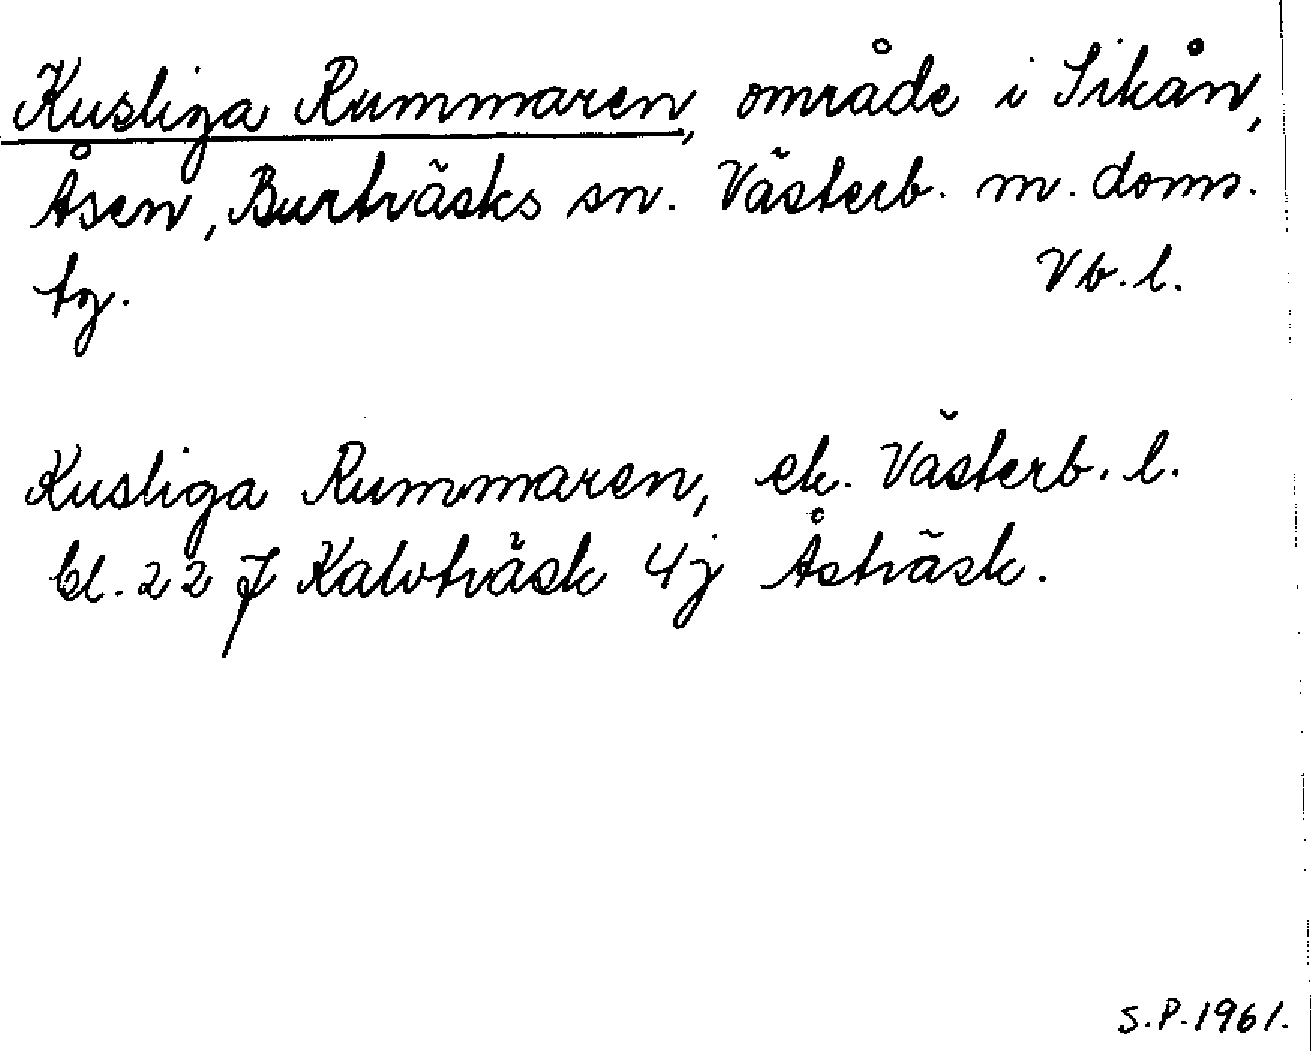 Kusliga Rummaren, område i Sikån,
Åsen, Burträsks sn. Västerb. m. doms.
tg. Vb. l.
Kusliga Rummaren, ek. Västerb. l.
bl. 22 J Kalvträsk 4j Åsträsk.
S.P. 1961.